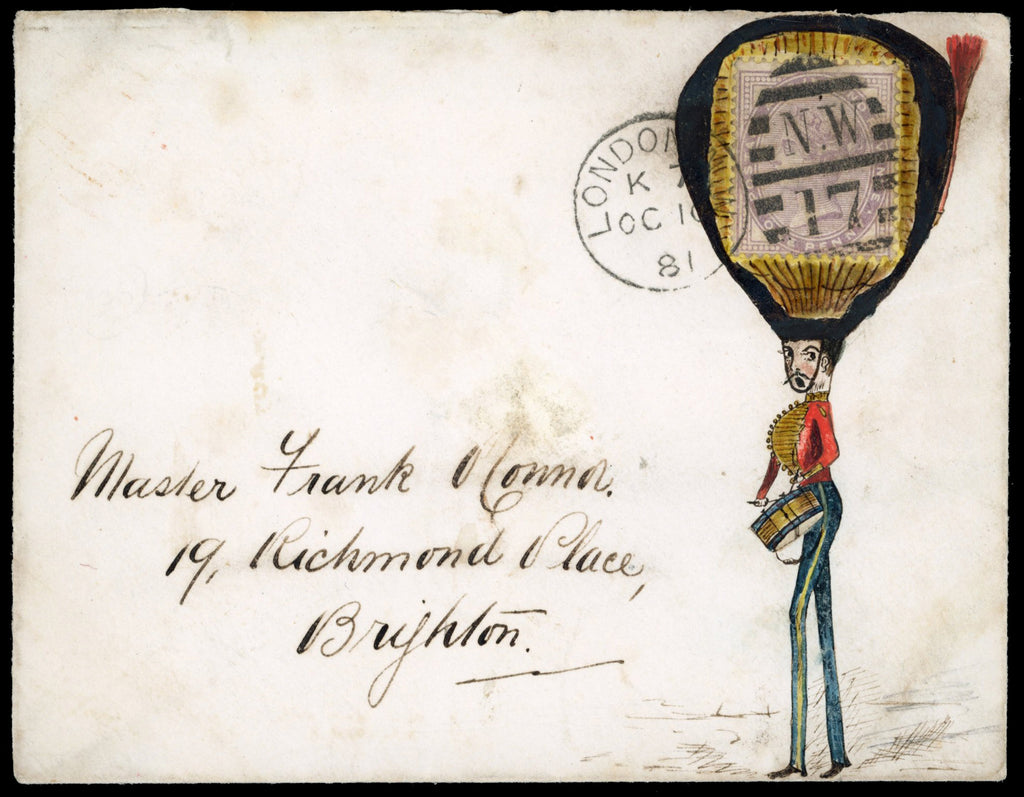 LONDON
K 7
OC 10
81
N.W
17
ONE PENNY
Master Frank O'Connor.
19, Richmond Place,
Brighton.